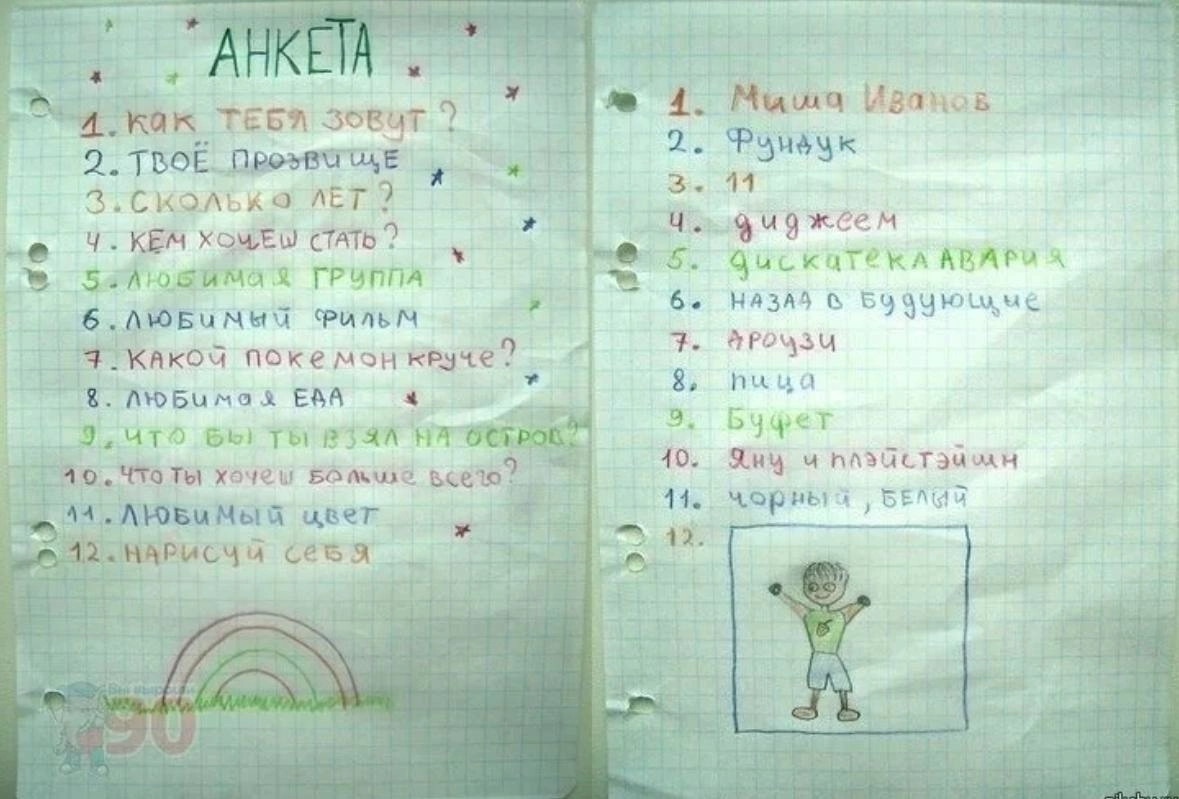 АНКЕТА
1. КАК ТЕБЯ ЗОВУТ?
2. ТВОЁ ПРОЗВИЩЕ
3. СКОЛЬКО ЛЕТ?
4. КЕМ ХОЧЕШ СТАТЬ?
5. ЛЮБИМАЯ ГРУППА
6. ЛЮБИМЫЙ ФИЛЬМ
7. КАКОЙ ПОКЕМОН КРУЧЕ?
8. ЛЮБИМАЯ ЕДА
9. ЧТО БЫ ТЫ ВЗЯЛ НА ОСТРОВ?
10. ЧТО ТЫ ХОЧЕШ БОЛЬШЕ ВСЕГО?
11. ЛЮБИМЫЙ ЦВЕТ
12. НАРИСУЙ СЕБЯ
Вы выросли
90
1. Миша Иванов
2. Фундук
3. 11
4. диджеем
5. дискатека АВАРИЯ
6. НАЗАД В БУДУЮЩИЕ
7. АРОУЗИ
8. пица
9. Буфет
10. Яну и плэйстэйшн
11. чорный, БЕЛЫЙ
12.